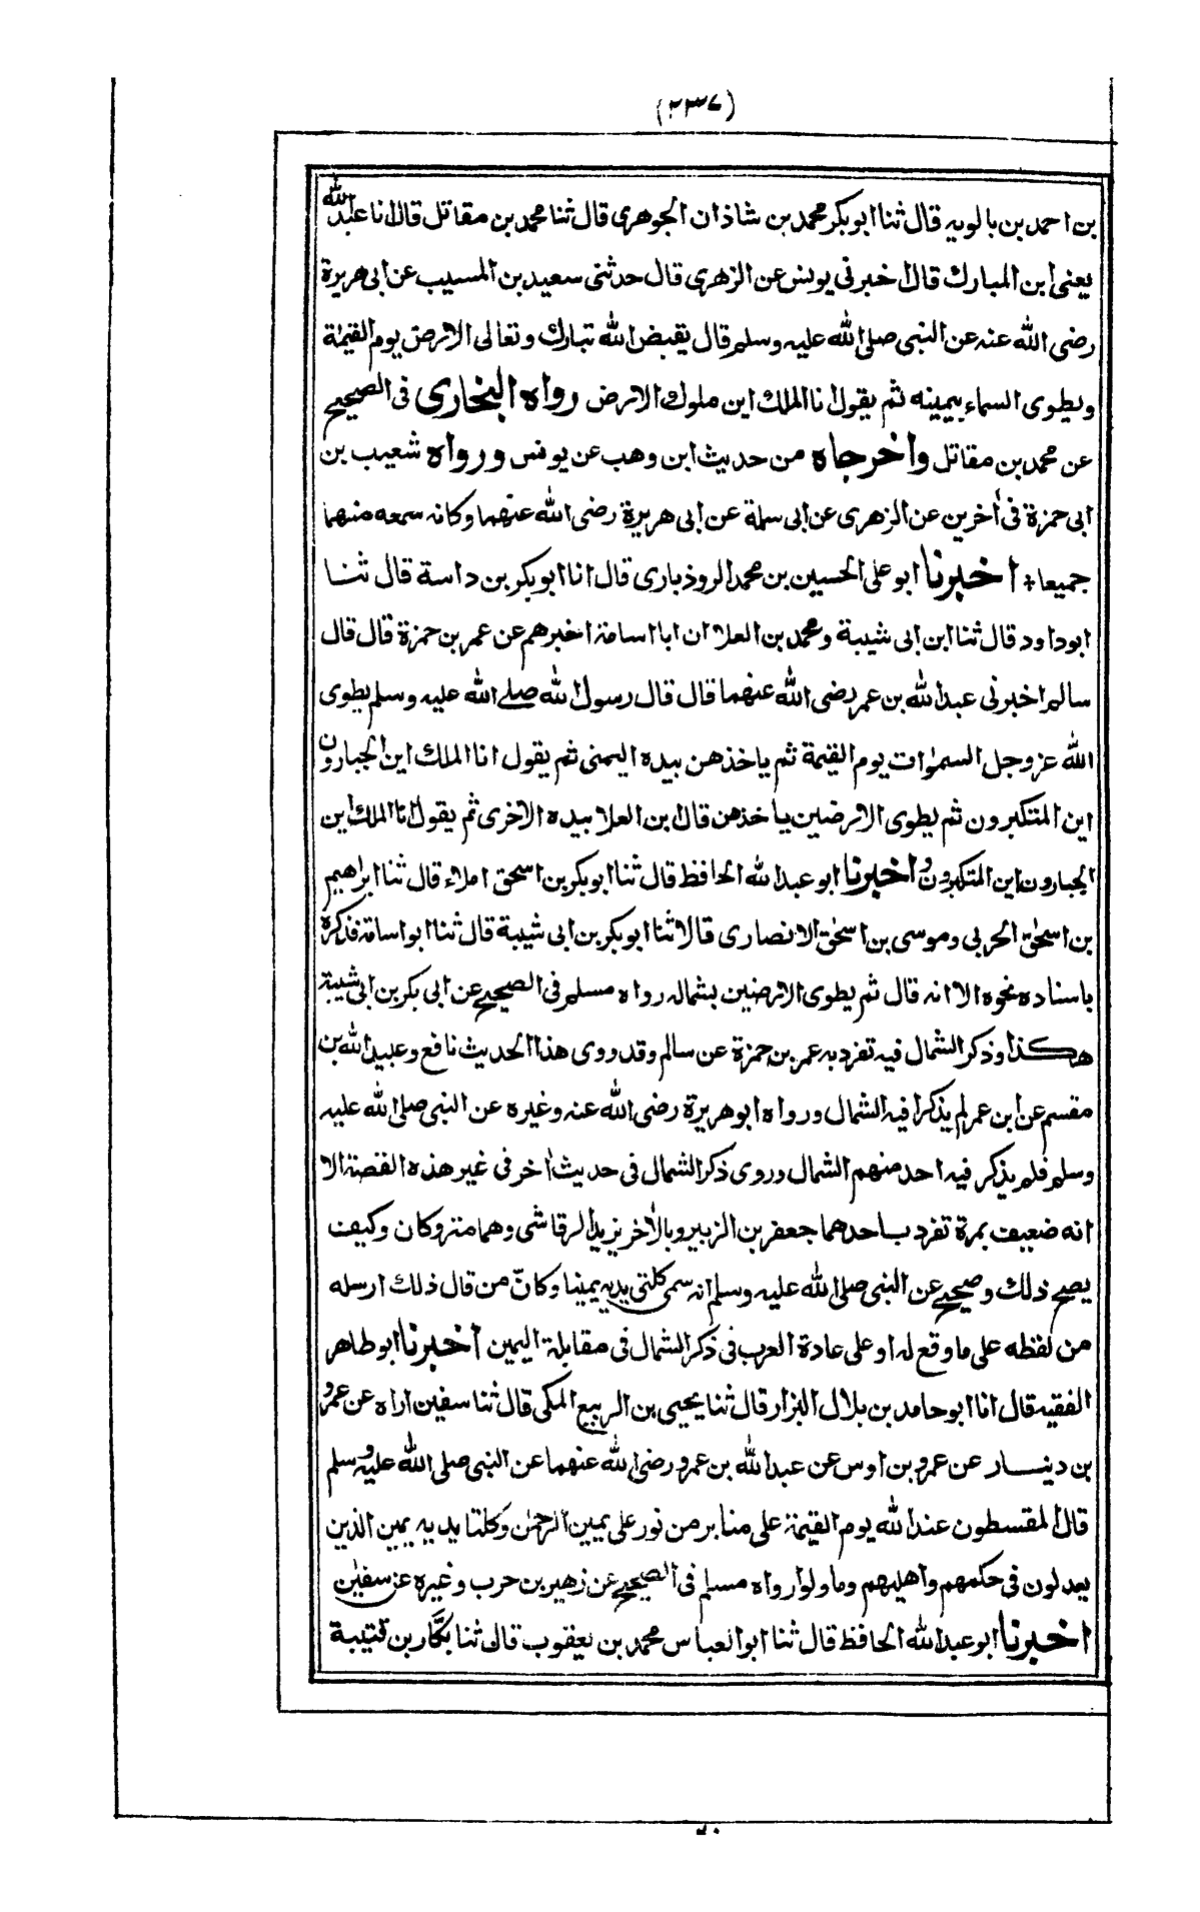 (٢٣٧)
بن احمد بن بالويه قال ثنا ابو بكر محمد بن شاذان الجوهري قال ثنا محمد بن مقاتل قال انا عبد الله
يعني ابن المبارك قال اخبرني يونس عن الزهري قال حدثني سعيد بن المسيب عن ابي هريرة
رضي الله عنه عن النبي صلى الله عليه وسلم قال يقبض الله تبارك وتعالى الارض يوم القيمة
ويطوى السماء بيمينه ثم يقول انا الملك اين ملوك الارض رواه البخاري في الصحيح
عن محمد بن مقاتل واخرجاه من حديث ابن وهب عن يونس ورواه شعيب بن
ابي حمزة في أخرين عن الزهري عن ابي سلمة عن ابي هريرة رضي الله عنهما وكانه سمعه منهما
جميعا * اخبرنا ابو علي الحسين بن محمد الروذباري قال انا ابو بكر بن داسة قال ثنا
ابوداود قال ثنا ابن ابي شيبة ومحمد بن العلا ان ابا اسامة اخبرهم عن عمر بن حمزة قال قال
سالم اخبرني عبد الله بن عمر رضي الله عنهما قال قال رسول الله صلے الله عليه وسلم يطوى
الله عز وجل السموٰات يوم القيمة ثم ياخذهن بيده اليمنى ثم يقول انا الملك اين الجبارون
اين المتكبرون ثم يطوى الارضين ياخذهن قال ابن العلا بيده الاخرى ثم يقول انا الملك اين
الجبارون اين المتكبرون و اخبرنا ابو عبد الله الحافظ قال ثنا ابو بكر بن اسحق املاء قال ثنا ابراهيم
بن اسحٰق الحربي وموسى بن اسحٰق الانصاري قالا ثنا ابو بكر بن ابي شيبة قال ثنا ابو اسامة فذكره
باسناده نحوه الا انه قال ثم يطوى الارضين بشماله رواه مسلم في الصحيح عن ابي بكر بن ابي شيبة
هكذا وذكر الشمال فيه تفرد به عمر بن حمزة عن سالم وقد روى هذا الحديث نافع وعبيد الله بن
مقسم عن ابن عمر لم يذكرا فيه الشمال ورواه ابو هريرة رضي الله عنه وغيره عن النبي صلى الله عليه
وسلم فلم يذكر فيه احد منهم الشمال وروى ذكر الشمال في حديث أخر في غير هذه القصة الا
انه ضعيف بمرة تفرد باحدهما جعفر بن الزبير وبالأخر يزيد الرقاشي وهما متروكان وكيف
يصح ذلك وصحيح عن النبي صلى الله عليه وسلم انه سمى كلتي يديه يمينا وكانّ من قال ذلك ارسله
من لفظه على ما وقع له او على عادة العرب في ذكر الشمال في مقابلة اليمين اخبرنا ابو طاهر
الفقيه قال انا ابو حامد بن بلال البزار قال ثنا يحيى بن الربيع المكي قال ثنا سفين اراه عن عمرو
بن دينار عن عمرو بن اوس عن عبد الله بن عمرو رضي الله عنهما عن النبي صلى الله عليه وسلم
قال المقسطون عند الله يوم القيمة على منابر من نور على يمين الرحمٰن وكلتا يديه يمين الذين
يعدلون في حكمهم واهليهم وما ولوا رواه مسلم في الصحيح عن زهير بن حرب وغيره عن سفين
اخبرنا ابو عبد الله الحافظ قال ثنا ابو العباس محمد بن يعقوب قال ثنا بكّار بن قتيبة